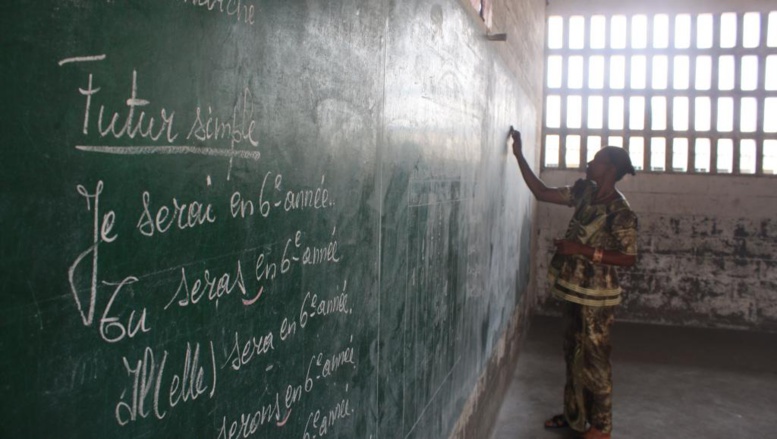 Futur simple
Je serai en 6e année.
Tu seras en 6e année
Il(elle) sera en 6e année.
serons en 6e année.
6e année.